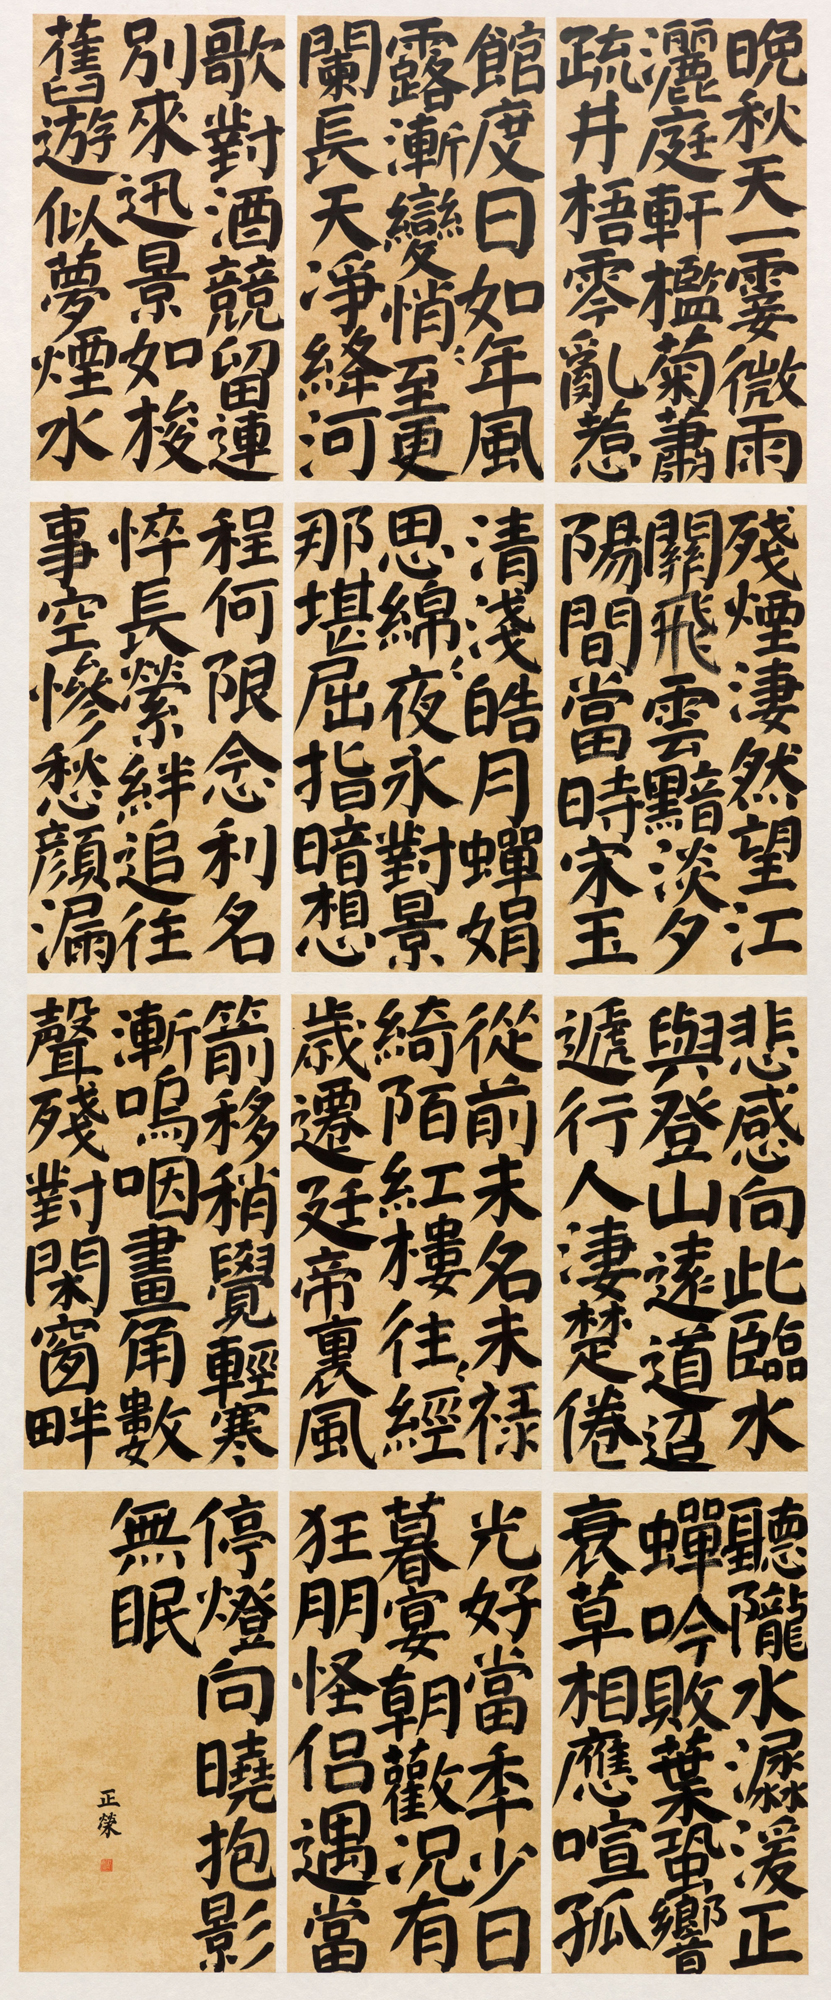 晚秋天一霎微雨
灑庭軒檻菊蕭
疏井梧零亂惹
殘煙淒然望江
關飛雲黯淡夕
陽間當時宋玉
悲感向此臨水
與登山遠道迢
遞行人淒楚倦
聽隴水潺湲正
蟬吟敗葉蛩響
衰草相應喧孤
館度日如年風
露漸變悄〻至更
闌長天淨絳河
清淺皓月蟬娟
思綿〻夜永對景
那堪屈指暗想
從前未名未祿
綺陌紅樓往〻經
歲遷延帝裏風
光好當年少日
暮宴朝歡況有
狂朋怪侶遇當
歌對酒競留連
別來迅景如梭
舊遊似夢煙水
程何限念利名
悴長縈絆追往
事空慘愁顏漏
箭移稍覺輕寒
漸嗚咽畫角數
聲殘對閑窗畔
停燈向曉抱影
無眠
正榮